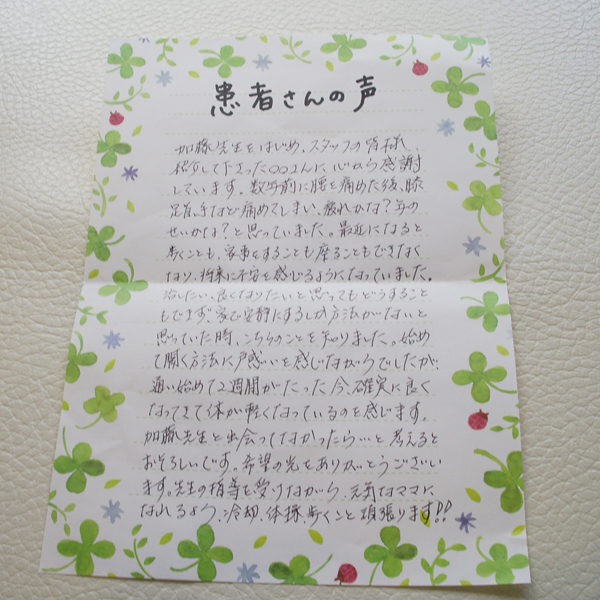 患者さんの声
加藤先生をはじめ、スタッフの皆様
紹介して下さった〇〇さんに、心から感謝
しています。数年前に腰を痛めた後、膝
足首、手など痛めてしまい、疲れかな？年の
せいかな？と思っていました。最近になると
歩くことも、家事をすることも座ることもできなく
なり、将来に不安を感じるようになっていました。
治したい、良くなりたいと思ってもどうすること
もできず家で安静にするしか方法がないと
思っていた時、こちらのことを知りました。始め
て聞く方法に戸惑いを感じながらでしたが、
通い始めて2週間がたった今、確実に良く
なってきて体が軽くなっているのを感じます。
加藤先生と出会ってなかったら…と考えると
おそろしいです。希望の光をありがとうござい
ます。先生の指導を受けながら、元気なママに
なれるよう、冷却、体操、歩くこと頑張ります!!